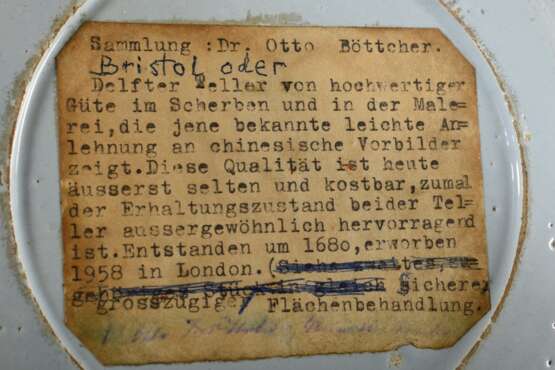 Sammlung :Dr. Otto Böttcher.
Bristol oder
Delfter Teller von hochwertiger
Güte im Scherben und in der Male=
rei,die jene bekannte leichte An=
lehnung an chinesische Vorbilder
zeigt.Diese Qualität ist heute
äusserst selten und kostbar,zumal
der Erhaltungszustand beider Tel=
ler aussergewöhnlich hervorragend
ist.Entstanden um 1680,erworben
1958 in London.(Siehe
in gleich sicherer
grosszügiger Flächenbehandlung.